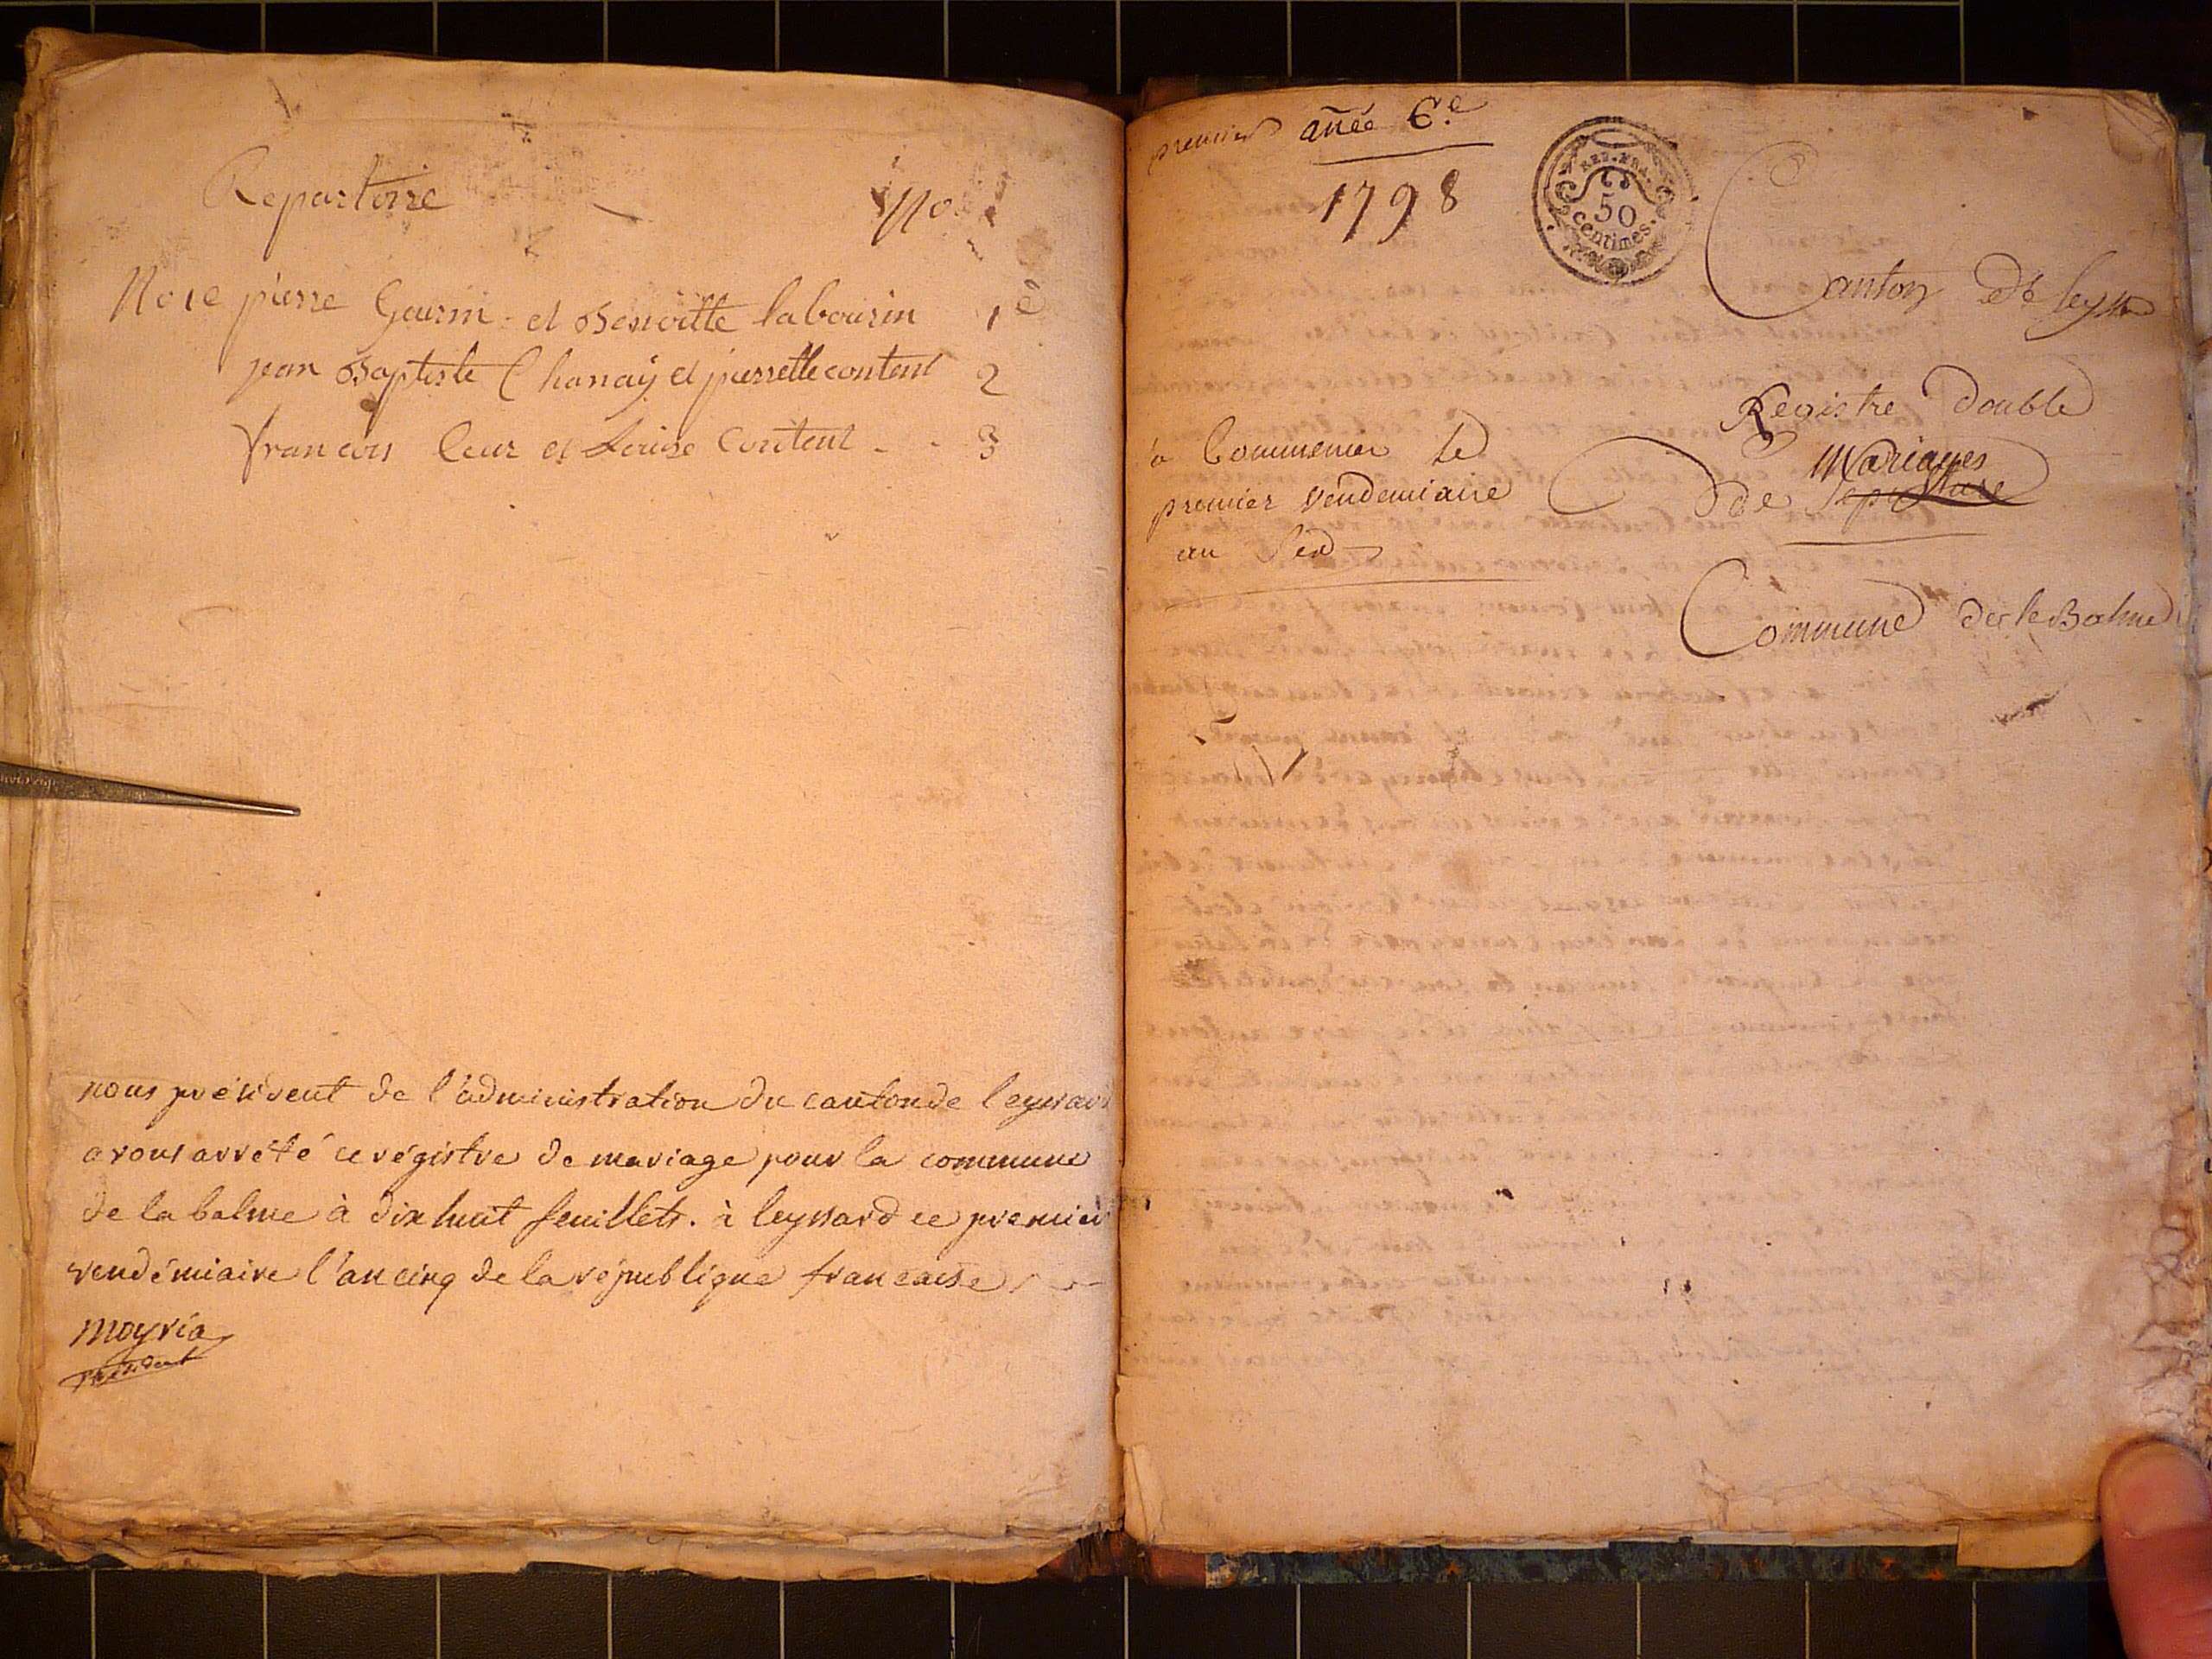 Repartoire No
pierre Guerin et Benoitte labourin 1e
jean Baptiste Chanay et pierrette content 2
francois Cuz et Louise Content 3
nous président de l'administration du canton de leyssard
avons arrêté ce régistre de mariage pour la commune
de la balme à dix huit feuillets. à leyssard ce premier
vendémiaire l'an cinq de la république francaise
moyria
président
premier année 6.e
1798
REP. FRA.
50
centimes.
Canton de leyss
Registre double
mariages
de sepulture
à Commencer le
premier vendemiaire
an
Commune de la Balme